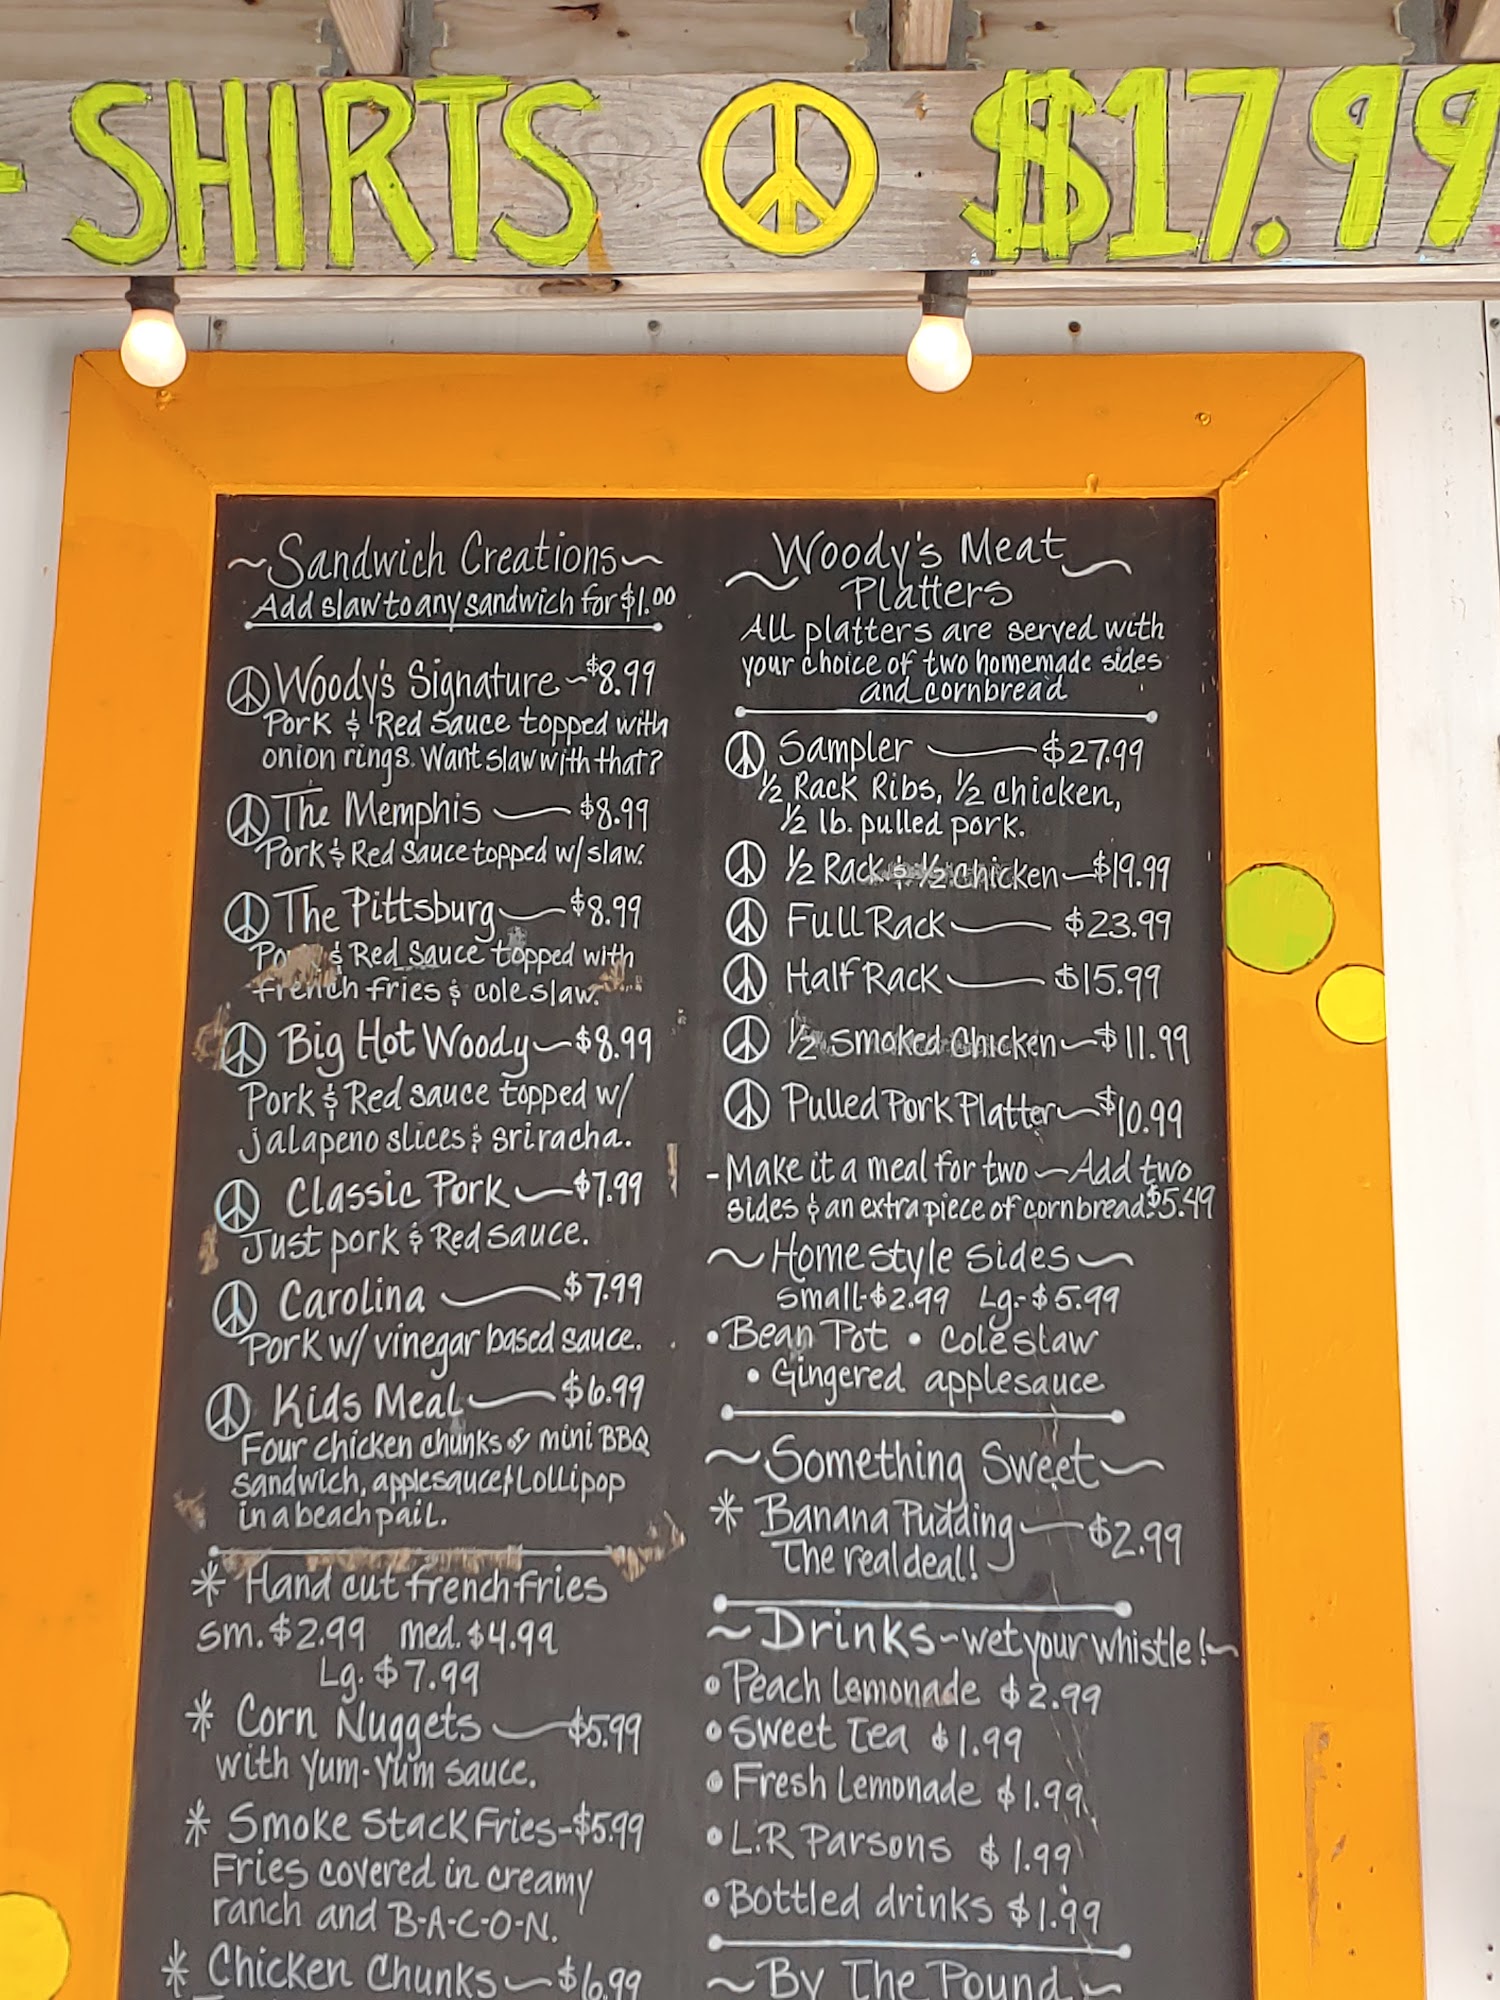 - SHIRTS $17.99
~Sandwich Creations~
Add slaw to any sandwich for $1.00
Woody's Signature ~$8.99
Pork & Red Sauce topped with
onion rings. Want slaw with that?
The Memphis — $8.99
Pork & Red Sauce topped w/ slaw.
The Pittsburg — $8.99
& Red Sauce topped with
french fries & coleslaw.
Big Hot Woody — $8.99
Pork & Red sauce topped w/
jalapeno slices & sriracha.
Classic Pork — $7.99
Just pork & Red sauce.
Carolina — $7.99
Pork w/ vinegar based sauce.
Kids Meal — $6.99
Four chicken chunks or mini BBQ
sandwich, applesauce & Lollipop
in a beach pail.
* Hand cut french fries
sm. $2.99 med. $4.99
Lg. $7.99
* Corn Nuggets — $5.99
with Yum-Yum sauce.
* Smoke Stack Fries - $5.99
Fries covered in creamy
ranch and B-A-C-O-N.
* Chicken Chunks — $6.99
~Woody's Meat~
Platters
All platters are served with
your choice of two homemade sides
and cornbread
Sampler — $27.99
1/2 Rack Ribs, 1/2 chicken,
1/2 lb. pulled pork.
1/2 Rack & 1/2 chicken — $19.99
Full Rack — $23.99
Half Rack — $15.99
1/2 Smoked Chicken — $11.99
Pulled Pork Platter — $10.99
- Make it a meal for two — Add two
sides & an extra piece of cornbread. $5.49
~Homestyle sides~
small-$2.99 Lg-$5.99
• Bean Pot • Coleslaw
• Gingered applesauce
~Something Sweet~
* Banana Pudding — $2.99
The real deal!
~Drinks~wet your whistle!~
• Peach Lemonade $2.99
• Sweet Tea $1.99
• Fresh Lemonade $1.99
• L.R Parsons $1.99
• Bottled drinks $1.99
~By The Pound~